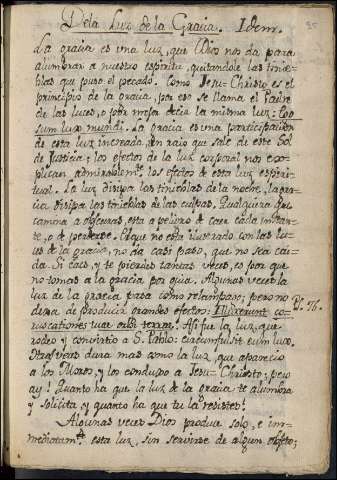 De la Luz de la Gracia. Idem.
La gracia es una luz, que Dios nos da para
alumbrar a nuestro espiritu, quitandole las tinie-
blas que puso el pecado. Como Jesu-Christo es el
principio de la gracia, por eso se llama el Padre
de las luces, o por mejor decir la misma luz: Ego
sum lux mundi. La gracia es una participacion
de esta luz increada, un raio que sale de este Sol
de Justicia; los efectos de la luz corporal nos ex-
plican admirablemte. los efectos de esta luz espiri-
tual. La luz disipa las tinieblas de la noche, la gra-
cia disipa las tinieblas de las culpas. Qualquiera que
camina a obscuras, esta a peligro de caer cada instan-
te, o de perderse. El que no está ilustrado con las lu-
ces de la gracia, no da casi paso, que no sea cai-
da. Si caes, y te pierdes tantas veces, es por que
no tomas a la gracia por guia. Algunas veces la
luz de la gracia pasa como relampago; pero no
dexa de producir grandes efectos: Illuxerunt co- Ps. 76.
ruscationes tuae orbi terrae. Asi fue la luz, que
rodeo y convirtio a S. Pablo: circumfulsit eum lux.
Otras veces dura mas como la luz, que aparecio
a los Magos, y los conduxo a Jesu-Christo; pero
ay! Quanto ha que la luz de la gracia te alumbra
y solicita y quanto ha que tu la resistes!
Algunas veces Dios produce solo, e im-
mediatamte. esta luz, sin servirse de algun objeto;